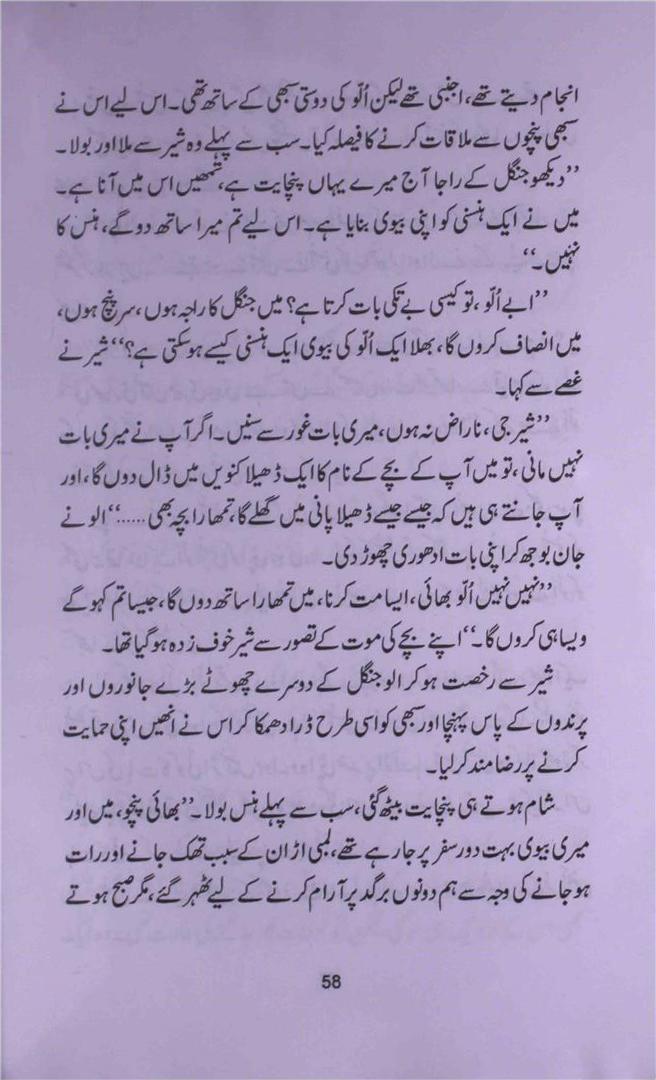 انجام دیتے تھے، اجنبی تھے لیکن اُلّو کی دوستی سبھی کے ساتھ تھی۔ اس لیے اس نے
سبھی پنچوں سے ملاقات کرنے کا فیصلہ کیا۔ سب سے پہلے وہ شیر سے ملا اور بولا۔
”دیکھو جنگل کے راجا آج میرے یہاں پنچایت ہے، تمھیں اس میں آنا ہے۔
میں نے ایک ہنسنی کو اپنی بیوی بنایا ہے۔ اس لیے تم میرا ساتھ دو گے، ہنس کا
نہیں۔“
”ابے اُلّو، تو کیسی بے تکی بات کرتا ہے؟ میں جنگل کا راجہ ہوں، سرپنچ ہوں،
میں انصاف کروں گا، بھلا ایک اُلّو کی بیوی ایک ہنسنی کیسے ہوسکتی ہے؟“ شیر نے
غصے سے کہا۔
”شیر جی، ناراض نہ ہوں، میری بات غور سے سنیں۔ اگر آپ نے میری بات
نہیں مانی، تو میں آپ کے بچے کے نام کا ایک ڈھیلا کنویں میں ڈال دوں گا، اور
آپ جانتے ہی ہیں کہ جیسے جیسے ڈھیلا پانی میں گھلے گا، تمھارا بچہ بھی ......“ الو نے
جان بوجھ کر اپنی بات ادھوری چھوڑ دی۔
”نہیں نہیں اُلّو بھائی، ایسا مت کرنا، میں تمھارا ساتھ دوں گا، جیسا تم کہو گے
ویسا ہی کروں گا۔“ اپنے بچے کی موت کے تصور سے شیر خوف زدہ ہو گیا تھا۔
شیر سے رخصت ہو کر الو جنگل کے دوسرے چھوٹے بڑے جانوروں اور
پرندوں کے پاس پہنچا اور سبھی کو اسی طرح ڈرا دھمکا کر اس نے انھیں اپنی حمایت
کرنے پر رضامند کرلیا۔
شام ہوتے ہی پنچایت بیٹھ گئی، سب سے پہلے ہنس بولا۔ ”بھائی پنچو، میں اور
میری بیوی بہت دور سفر پر جا رہے تھے، لمبی اڑان کے سبب تھک جانے اور رات
ہو جانے کی وجہ سے ہم دونوں برگد پر آرام کرنے کے لیے ٹھہر گئے، مگر صبح ہوتے
58